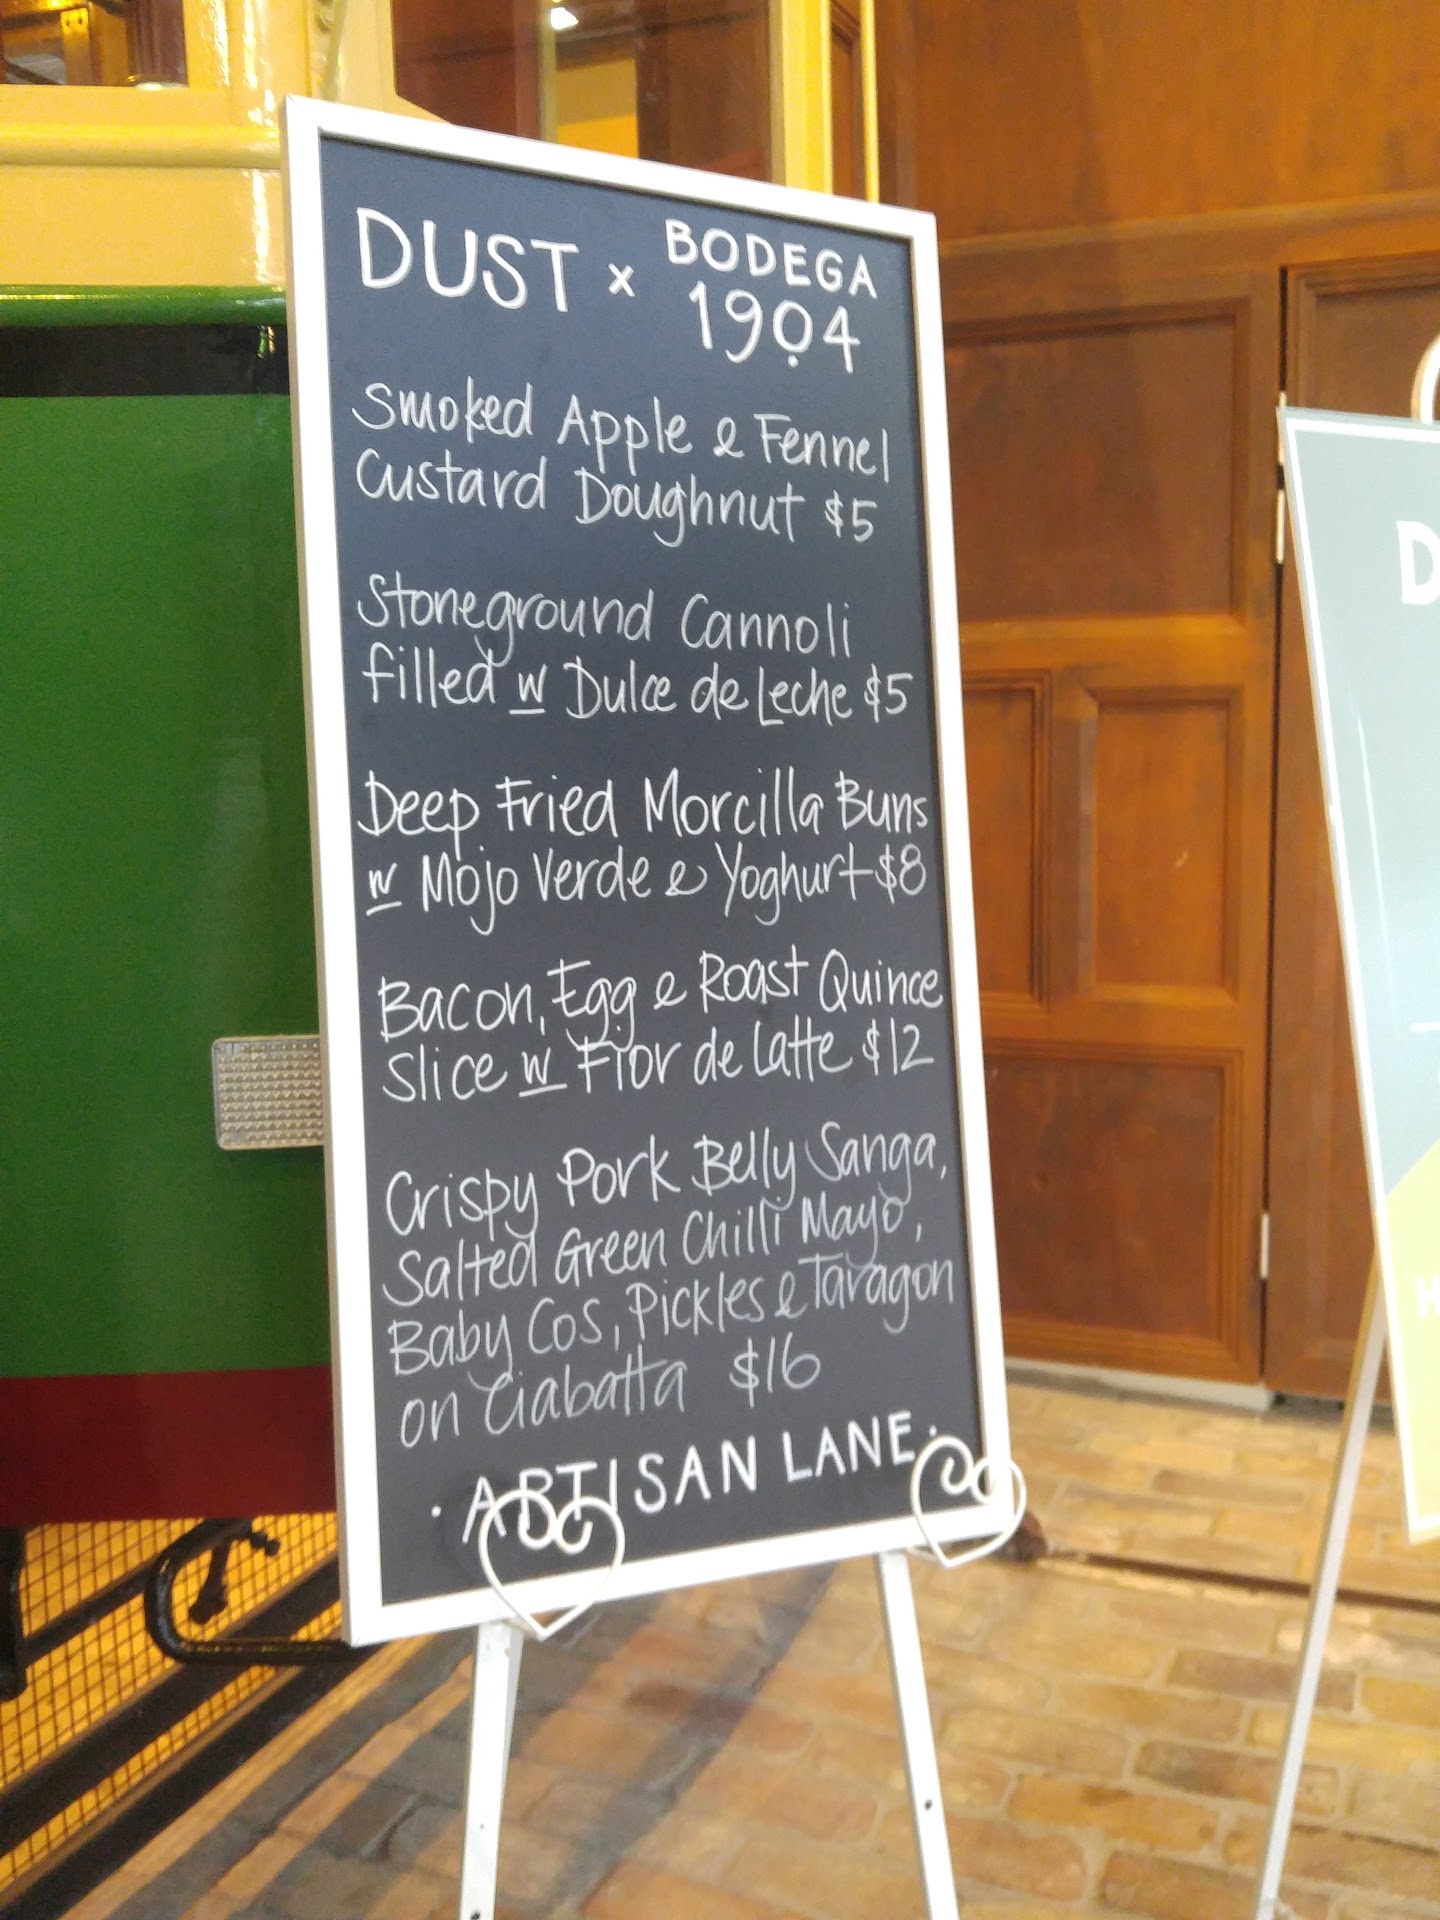 DUST x BODEGA
1904
Smoked Apple & Fennel
Custard Doughnut $5
Stoneground Cannoli
filled w Dulce de Leche $5
Deep Fried Morcilla Buns
w Mojo Verde & Yoghurt $8
Bacon, Egg & Roast Quince
Slice w Fior de Latte $12
Crispy Pork Belly Sanga,
Salted Green Chilli Mayo,
Baby Cos, Pickles & Taragon
on Ciabatta $16
· ARTISAN LANE ·
D
H